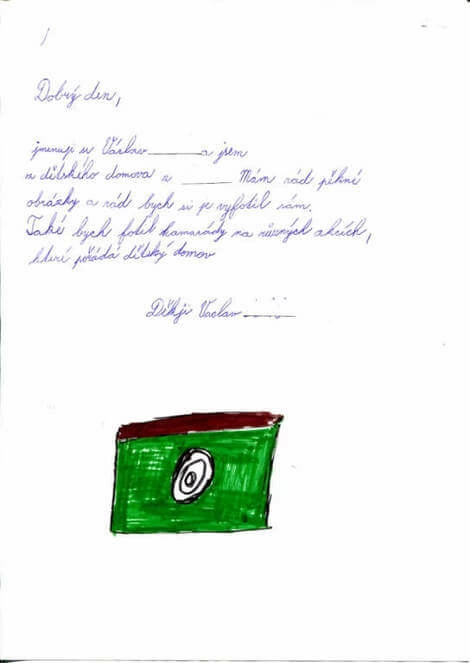 Dobrý den,
jmenuji se Václav a jsem
z dětského domova z Mám rád pěkné
obrázky a rád bych si je vyfotil sám.
Také bych fotil kamarády na různých akcích,
které pořádá dětský domov
Děkji Vaclav